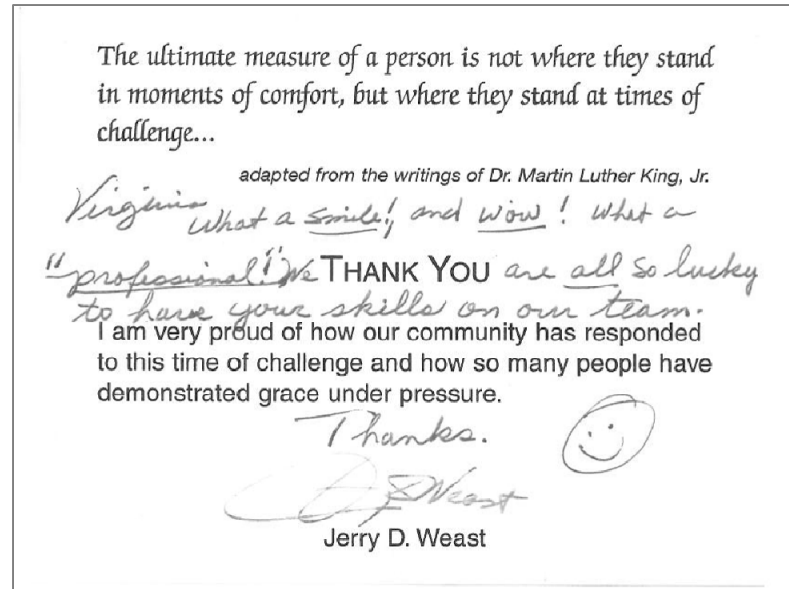 The ultimate measure of a person is not where they stand
in moments of comfort, but where they stand at times of
challenge...
adapted from the writings of Dr. Martin Luther King, Jr.
Virginia
What a smile!, and wow! What a
"professional!" We THANK YOU are all so lucky
to have your skills on our team.
I am very proud of how our community has responded
to this time of challenge and how so many people have
demonstrated grace under pressure.
Thanks.
J D Weast
Jerry D. Weast